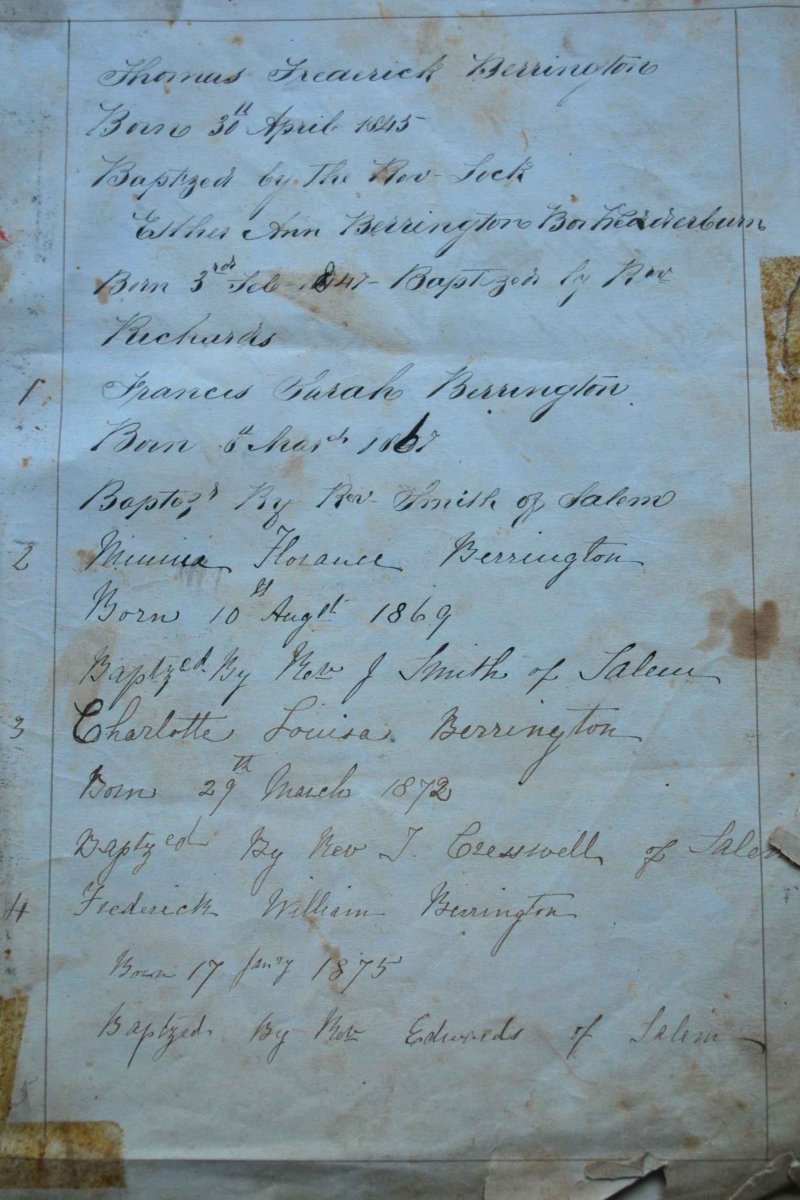 Thomas Frederick Berrington
Born 30th April 1845
Baptzed by The Rev Lock
Esther Ann Berrington
Born 3rd Feb 1847 Baptized by Rev
Richards
1 Francis Sarah Berrington
Born 6th March 1867
Baptezd By Rev Smith of Salem
2 Minnie Florance Berrington
Born 10th Augst 1869
Baptzed By Rev J Smith of Salem
3 Charlotte Louisa Berrington
Born 29th March 1872
Baptyzed By Rev T. Cresswell of Salem
4 Frederick William Berrington
Born 17 Jany 1875
Baptzed By Rev Edwards of Salem
5